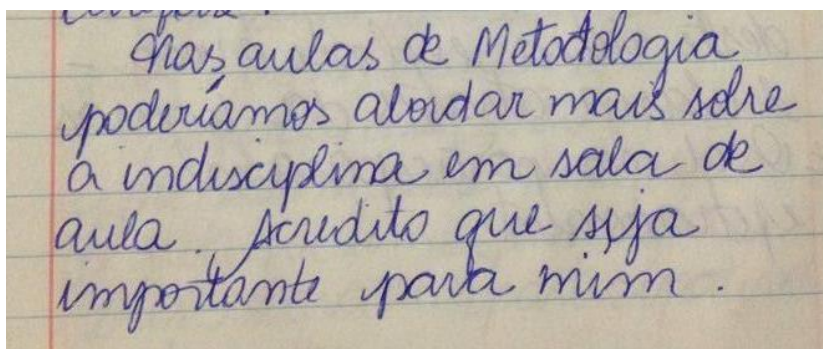 Nas aulas de Metodologia
poderíamos abordar mais sobre
a indisciplina em sala de
aula. Acredito que seja
importante para mim.